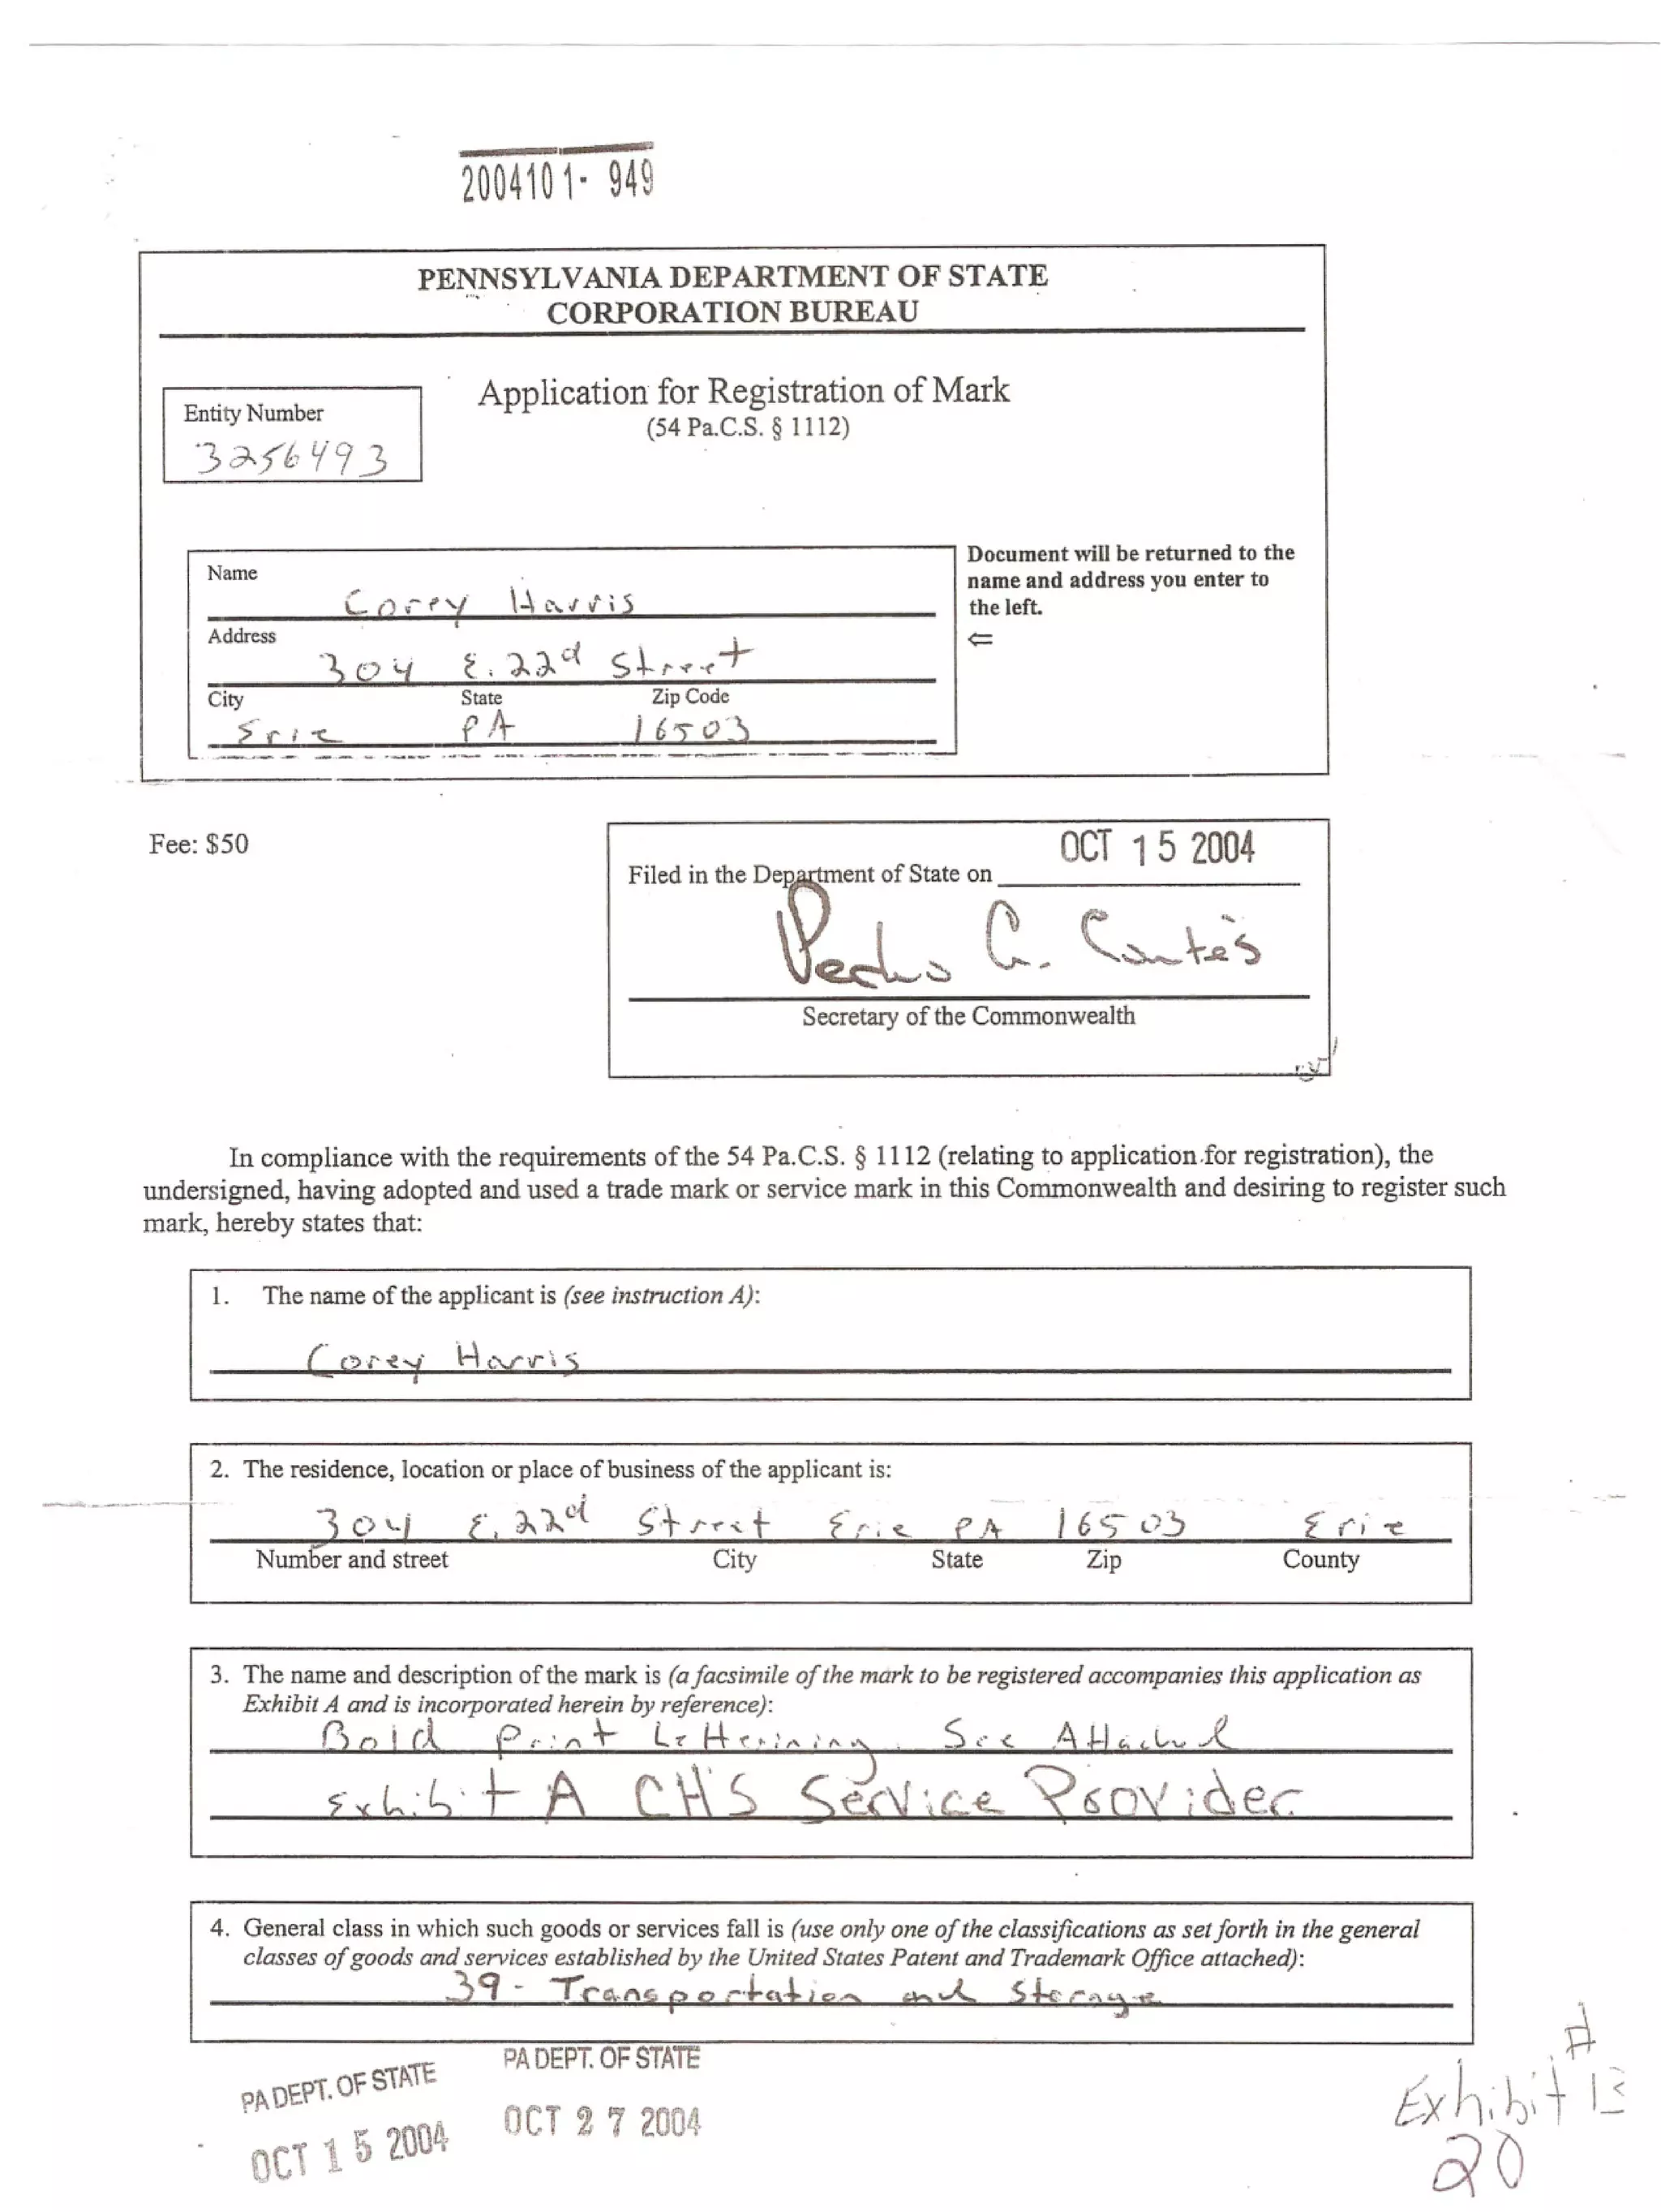 2004101- 949
PENNSYLVANIA DEPARTMENT OF STATE
CORPORATION BUREAU
Application for Registration of Mark
(54 Pa.C.S. § 1112)
Entity Number
3256493
Document will be returned to the
name and address you enter to
the left.
⇐
Name
Corey Harris
Address
304 E. 22d Street
City State Zip Code
Erie PA 16503
Fee: $50
Filed in the Department of State on OCT 15 2004
Pedro A. Cortés
Secretary of the Commonwealth
In compliance with the requirements of the 54 Pa.C.S. § 1112 (relating to application for registration), the
undersigned, having adopted and used a trade mark or service mark in this Commonwealth and desiring to register such
mark, hereby states that:
1. The name of the applicant is (see instruction A):
Corey Harris
2. The residence, location or place of business of the applicant is:
304 E. 22d Street Erie PA 16503 Erie
Number and street City State Zip County
3. The name and description of the mark is (a facsimile of the mark to be registered accompanies this application as
Exhibit A and is incorporated herein by reference):
Bold Print Lettering. See Attached
Exhibit A CH'S Service Provider
4. General class in which such goods or services fall is (use only one of the classifications as set forth in the general
classes of goods and services established by the United States Patent and Trademark Office attached):
39 - Transportation and Storage
PA DEPT. OF STATE
OCT 15 2004
PA DEPT. OF STATE
OCT 27 2004
Exhibit #
20